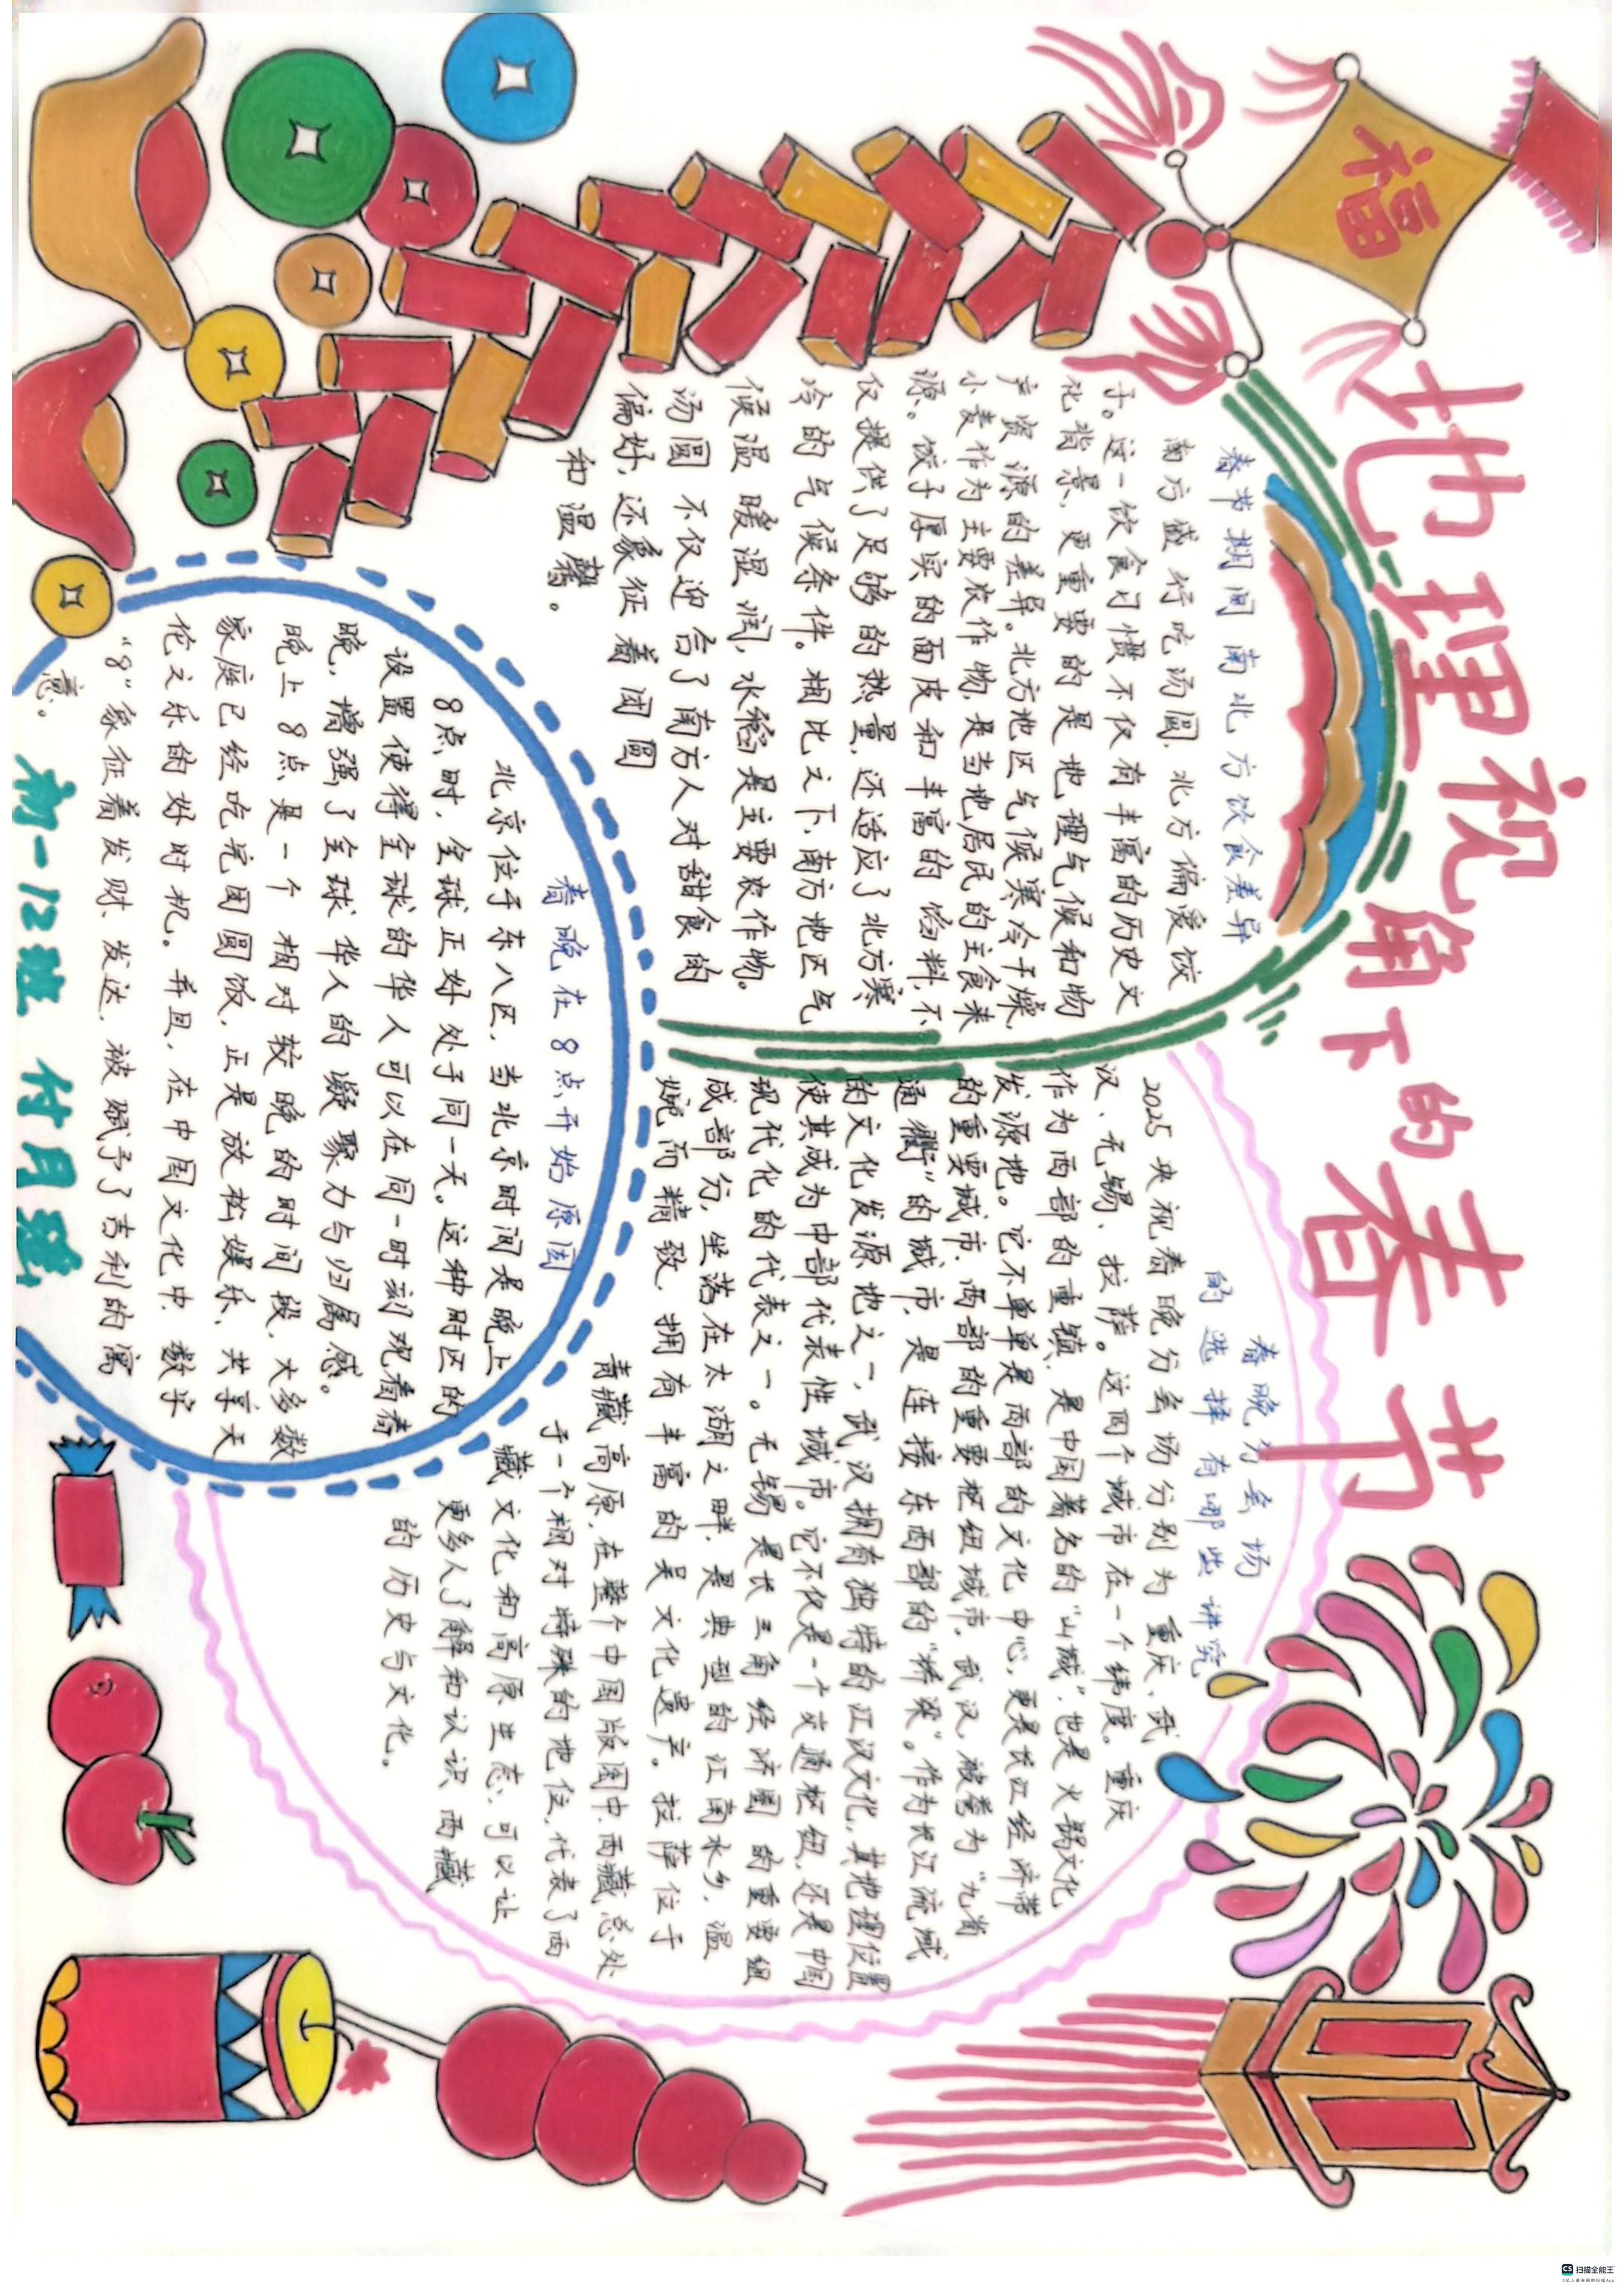 地理视角下的春节
福
春节期间南北方饮食差异
南方盛行吃汤圆，北方偏爱饺
子。这一饮食习惯不仅有丰富的历史文
化背景，更重要的是地理气候和物
产资源的差异。北方地区气候寒冷干燥，
小麦作为主要农作物，是当地居民的主食来
源。饺子厚实的面皮和丰富的馅料，不
仅提供了足够的热量，还适应了北方寒
冷的气候条件。相比之下，南方地区气
候温暖湿润，水稻是主要农作物。
汤圆不仅迎合了南方人对甜食的
偏好，还象征着团圆
和温馨。
春晚分会场
的选择有哪些讲究
2025央视春晚分会场分别为重庆、武
汉、无锡、拉萨。这四个城市在一个纬度。重庆
作为西部的重镇，是中国著名的“山城”，也是火锅文化
发源地。它不单单是西部的文化中心，更是长江经济带
的重要城市，西部的重要枢纽城市。武汉，被誉为“九省
通衢”的城市，是连接东西部的“桥梁”。作为长江流域
的文化发源地之一，武汉拥有独特的江汉文化，其地理位置
使其成为中部代表性城市。它不仅是一个交通枢纽，还是中国
现代化的代表之一。无锡是长三角经济圈的重要组
成部分，坐落在太湖之畔，是典型的江南水乡，温
婉而精致，拥有丰富的吴文化遗产。拉萨位于
青藏高原，在整个中国版图中，西藏总处
于一个相对特殊的地位，代表了西
藏文化和高原生态，可以让
更多人了解和认识西藏
的历史与文化。
春晚在8点开始原因
北京位于东八区，当北京时间是晚上
8点时，全球正好处于同一天。这种时区的
设置使得全球的华人可以在同一时刻观看春
晚，增强了全球华人的凝聚力与归属感。
晚上8点是一个相对较晚的时间段，大多数
家庭已经吃完团圆饭，正是放松娱乐、共享天
伦之乐的好时机。并且，在中国文化中，数字
“8”象征着发财、发达，被赋予了吉利的寓
意。
初一12班 付月
CS 扫描全能王